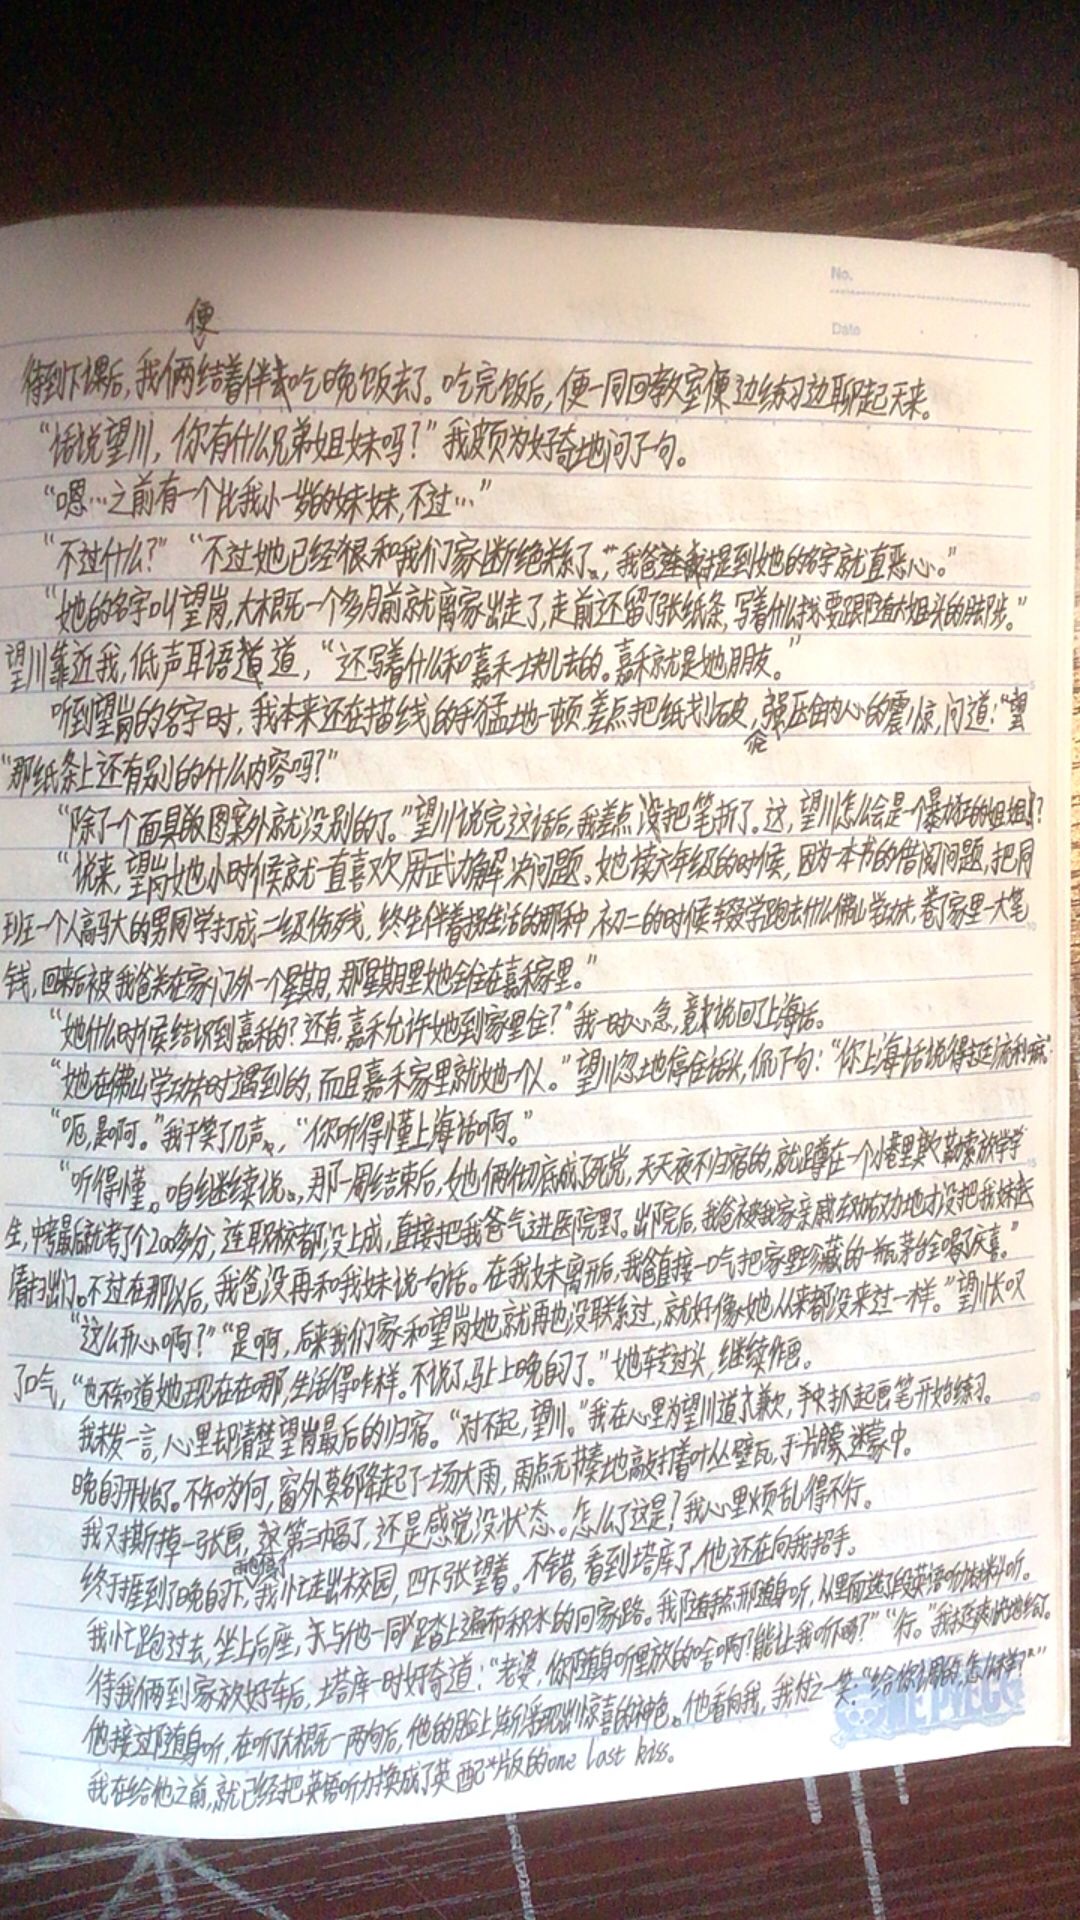 No.
Date
便
待到下课后,我俩结着伴去吃晚饭去了。吃完饭后,便一同回教室便边练习边聊起天来。
“话说望川,你有什么兄弟姐妹吗?”我颇为好奇地问了一句。
“嗯…之前有一个比我小一岁的妹妹,不过…”
“不过什么?”“不过她已经狠和我们家断绝关系了。”“我爸提到她的名字就直恶心。”
“她的名字叫望岗,大概一个多月前就离家出走了,走前还留了张纸条,写着什么我要跟随大姐头的脚步。”
望川靠近我,低声耳语道,“还写着什么和嘉禾一块儿去的。嘉禾就是她朋友。”
听到望岗的名字时,我本来还在描线的手猛地一顿,差点把纸划破,强压住内心的震惊,问道:“望
“那纸条上还有别的什么内容吗?”
“除了一个面具的图案外就没别的了。”望川说完这话后,我差点没把笔折了。这,望川怎么会是一个暴力狂的姐姐!?
“说来,望岗她小时候就一直喜欢用武力解决问题。她读六年级的时候,因为一本书的借阅问题,把同
班一个人高马大的男同学打成二级伤残,终生伴着拐生活的那种,初二的时候辍学跑去什么佛山学功夫,卷了家里一大笔
钱,回来后被我爸关在家门外一个星期,那星期里她全住在嘉禾家里。”
“她什么时候结识到嘉禾的?还有,嘉禾允许她到家里住?”我一时心急,竟说回了上海话。
“她在佛山学功夫时遇到的,而且嘉禾家里就她一个人。”望川忽地停住话头,侃了句:“你上海话说得挺流利嘛。”
“呃,是啊。”我干笑了几声,“你听得懂上海话啊。”
“听得懂。咱继续说。那一周结束后,她俩彻底成了死党,天天夜不归宿的,就蹲在一个小巷里敲诈勒索放学学
生,中考最后就考了个200多分,连职校都没上成,直接把我爸气进医院里了。出院后,我爸被我家亲戚左劝右劝地才没把我妹赶
清扫出门。不过在那以后,我爸没再和我妹说一句话。在我妹离开后,我爸直接一口气把家里珍藏的一瓶茅台全喝了庆喜。”
“这么开心啊?”“是啊,后来我们家和望岗她就再也没联系过,就好像她从来都没来过一样。”望川长叹
了口气,“也不知道她现在在哪,生活得咋样。不说了,马上上晚自习了。”她转过头,继续作画。
我未发一言,心里却清楚望岗最后的归宿。“对不起,望川。”我在心里为望川道了歉,手中抓起画笔开始练习。
晚自习开始了。不知为何,窗外莫名降起了一场大雨,雨点无节奏地敲打着叶丛壁瓦,于一片朦迷蒙中。
我又撕掉一张画,这第三幅了,还是感觉没状态。怎么了这是?我心里烦乱得不行。
终于捱到了晚自习下,我忙走出校园,四下张望着。不错,看到塔库了,他还在向我招手。
我忙跑过去,坐上后座,与他一同踏上遍布积水的回家路。我随手点开随身听,从里面选了段英语听力材料听。
待我俩到家放好车后,塔库一时好奇道:“老婆,你随身听里放的啥啊?能让我听下吗?”“行。”我挺爽快地给了。
他接过随身听,在听大概一两句后,他的脸上渐浮现出惊喜的神色。他看向我,我付之一笑:“给你调的,怎么样?”
我在给他之前,就已经把英语听力换成了英配*版的one last kiss。
ONE PIECE